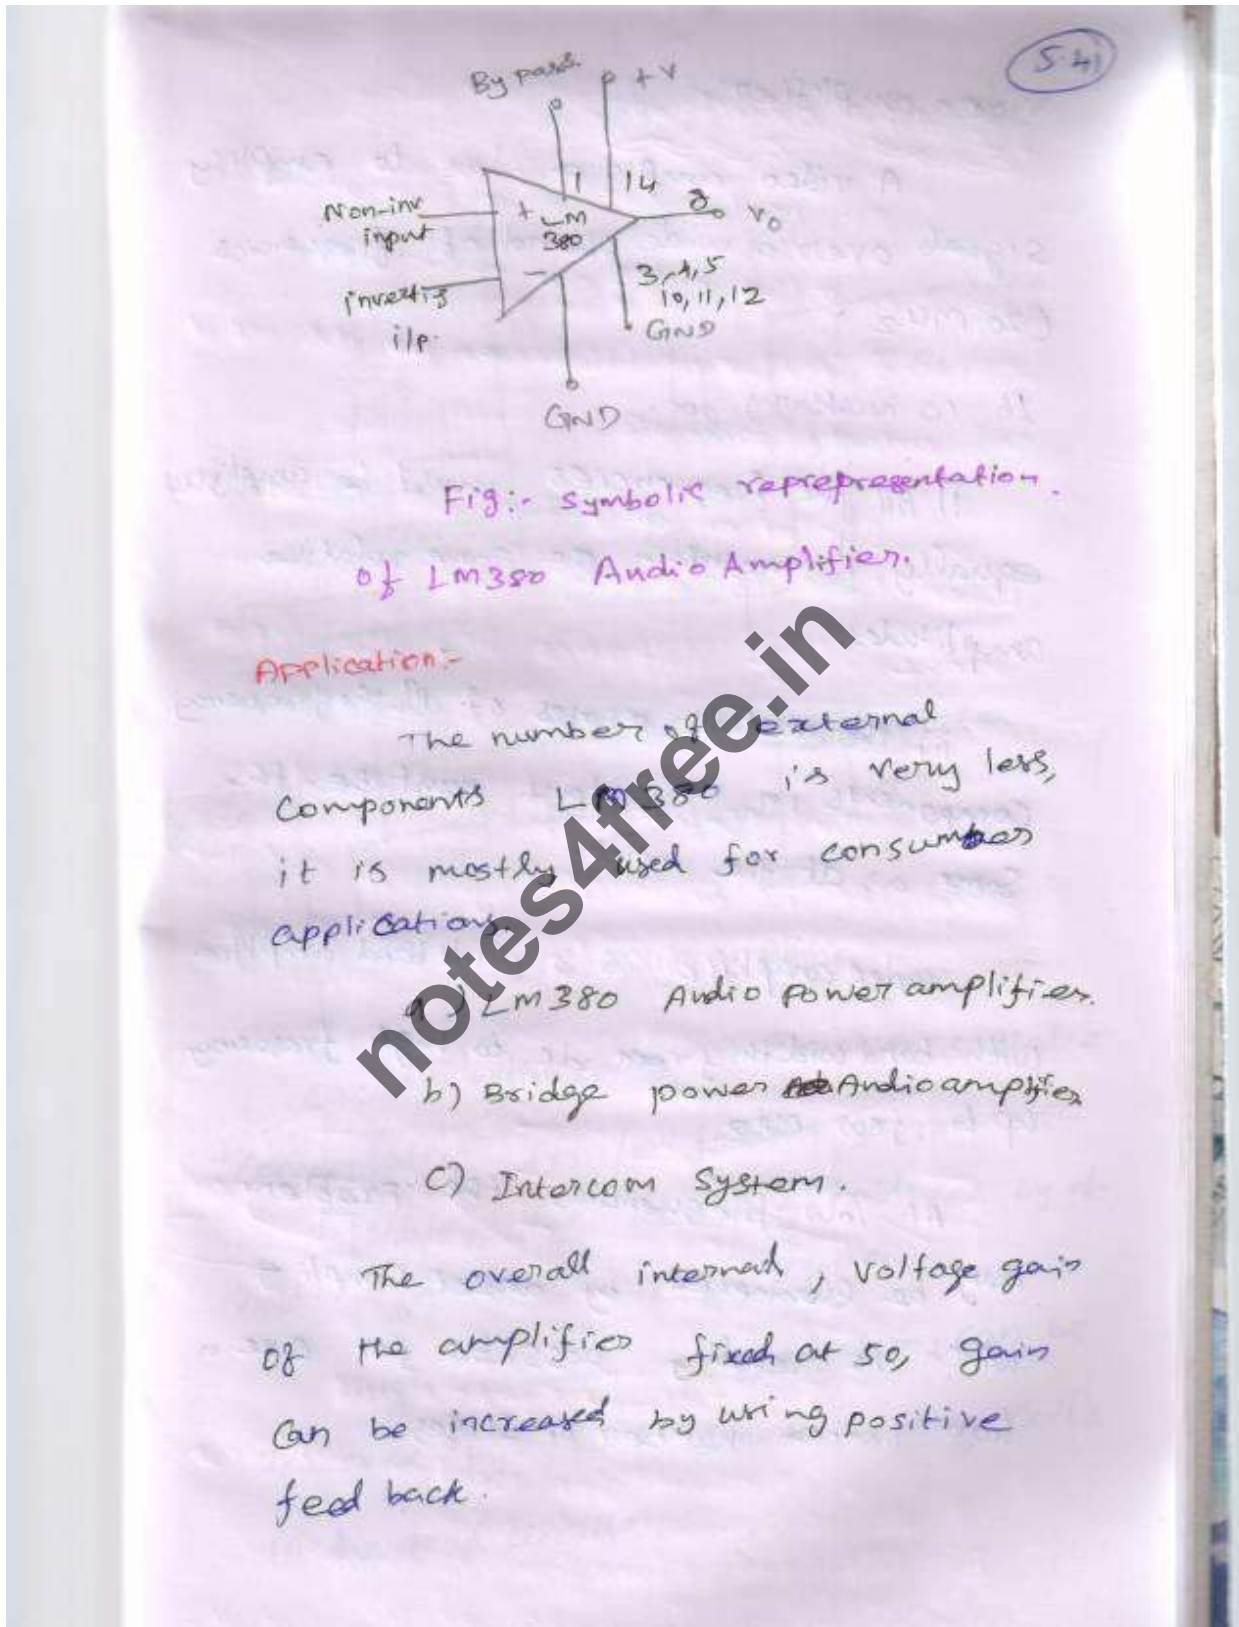 5.41
By pass
+V
1
14
Non-inv
input
+
LM
380
-
8
Vo
3,4,5
10,11,12
GND
invertig
i/p.
GND
Fig:- Symbolic reprepresentation.
of LM380 Audio Amplifier.
Application:-
The number of external
Components LM380 is very less,
it is mostly used for consumer
applications.
a) LM380 Audio Power amplifier.
b) Bridge power Audio amplifier
c) Intercom System.
The overall internal, voltage gain
of the amplifier fixed at 50, gain
can be increased by using positive
feed back.
notes4free.in